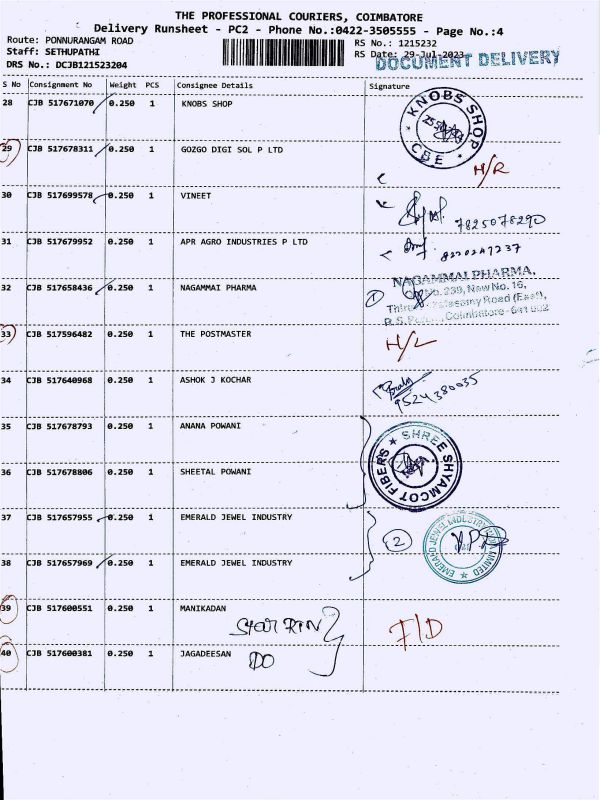 THE PROFESSIONAL COURIERS, COIMBATORE
Delivery Runsheet - PC2 - Phone No.:0422-3505555 - Page No.:4
Route: PONNURANGAM ROAD RS No.: 1215232
Staff: SETHUPATHI RS Date: 29-Jul-2023
DOCUMENT DELIVERY
DRS No.: DCJB121523204
S No Consignment No Weight PCS Consignee Details Signature
28 CJB 517671070 0.250 1 KNOBS SHOP
KNOBS SHOP CBE
29 CJB 517678311 0.250 1 GOZGO DIGI SOL P LTD H/R
30 CJB 517699578 0.250 1 VINEET
7825078290
31 CJB 517679952 0.250 1 APR AGRO INDUSTRIES P LTD
8220247237
32 CJB 517658436 0.250 1 NAGAMMAI PHARMA
NAGAMMAI PHARMA,
1 No. 239, New No. 16,
Road (East),
Coimbatore - 641 002
33 CJB 517596482 0.250 1 THE POSTMASTER H/L
34 CJB 517640968 0.250 1 ASHOK J KOCHAR
9524380035
35 CJB 517678793 0.250 1 ANANA POWANI
SHREE SHYAMCOT FIBERS
36 CJB 517678806 0.250 1 SHEETAL POWANI
37 CJB 517657955 0.250 1 EMERALD JEWEL INDUSTRY
2 EMERALD JEWEL INDUSTRY INDIA LIMITED
38 CJB 517657969 0.250 1 EMERALD JEWEL INDUSTRY
39 CJB 517600551 0.250 1 MANIKADAN
RTN F/D
40 CJB 517600381 0.250 1 JAGADEESAN DO